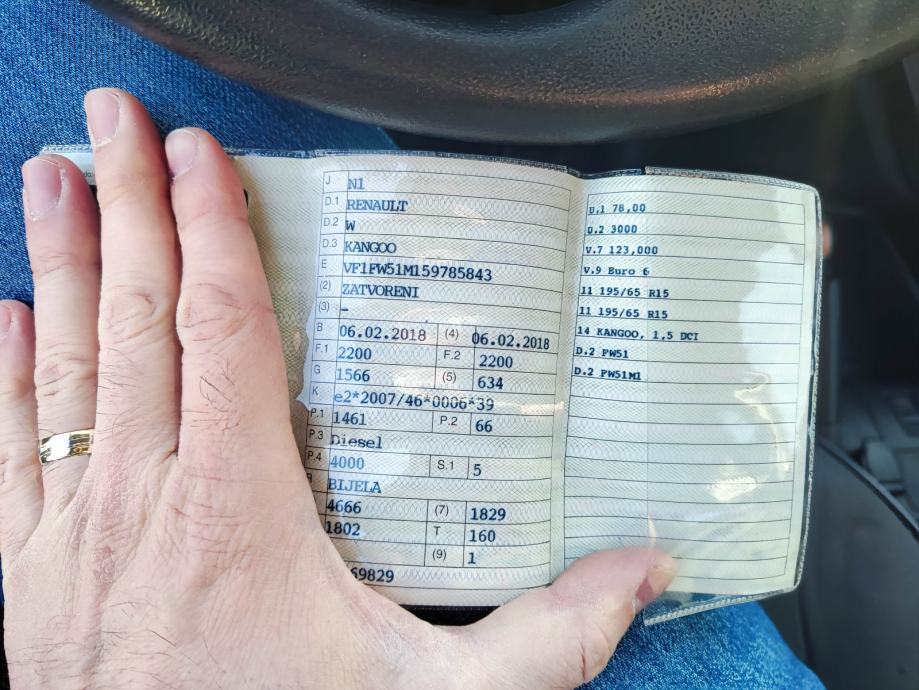 J N1
D.1 RENAULT
D.2 W
D.3 KANGOO
E VF1FW51M159785843
(2) ZATVORENI
(3) -
B 06.02.2018 (4) 06.02.2018
F.1 2200 F.2 2200
G 1566 (5) 634
K e2*2007/46*0006*39
P.1 1461 P.2 66
P.3 Diesel
P.4 4000 S.1 5
BIJELA
4666 (7) 1829
1802 T 160
(9) 1
69829
U.1 78,00
U.2 3000
V.7 123,000
V.9 Euro 6
11 195/65 R15
11 195/65 R15
14 KANGOO, 1,5 DCI
D.2 FW51
D.2 FW51M1